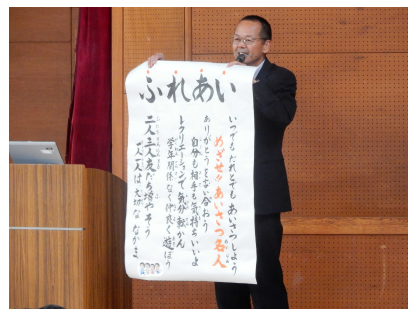 ふれあい
いつでもだれとでもあいさつしよう
めざせ!!あいさつ名人
ありがとうを言い合おう
自分も相手も気持ちいいよ
レクリエーションで気分転かん
学年関係なく仲良く遊ぼう
二人三人友だち増やそう
一人一人は大切ななかま